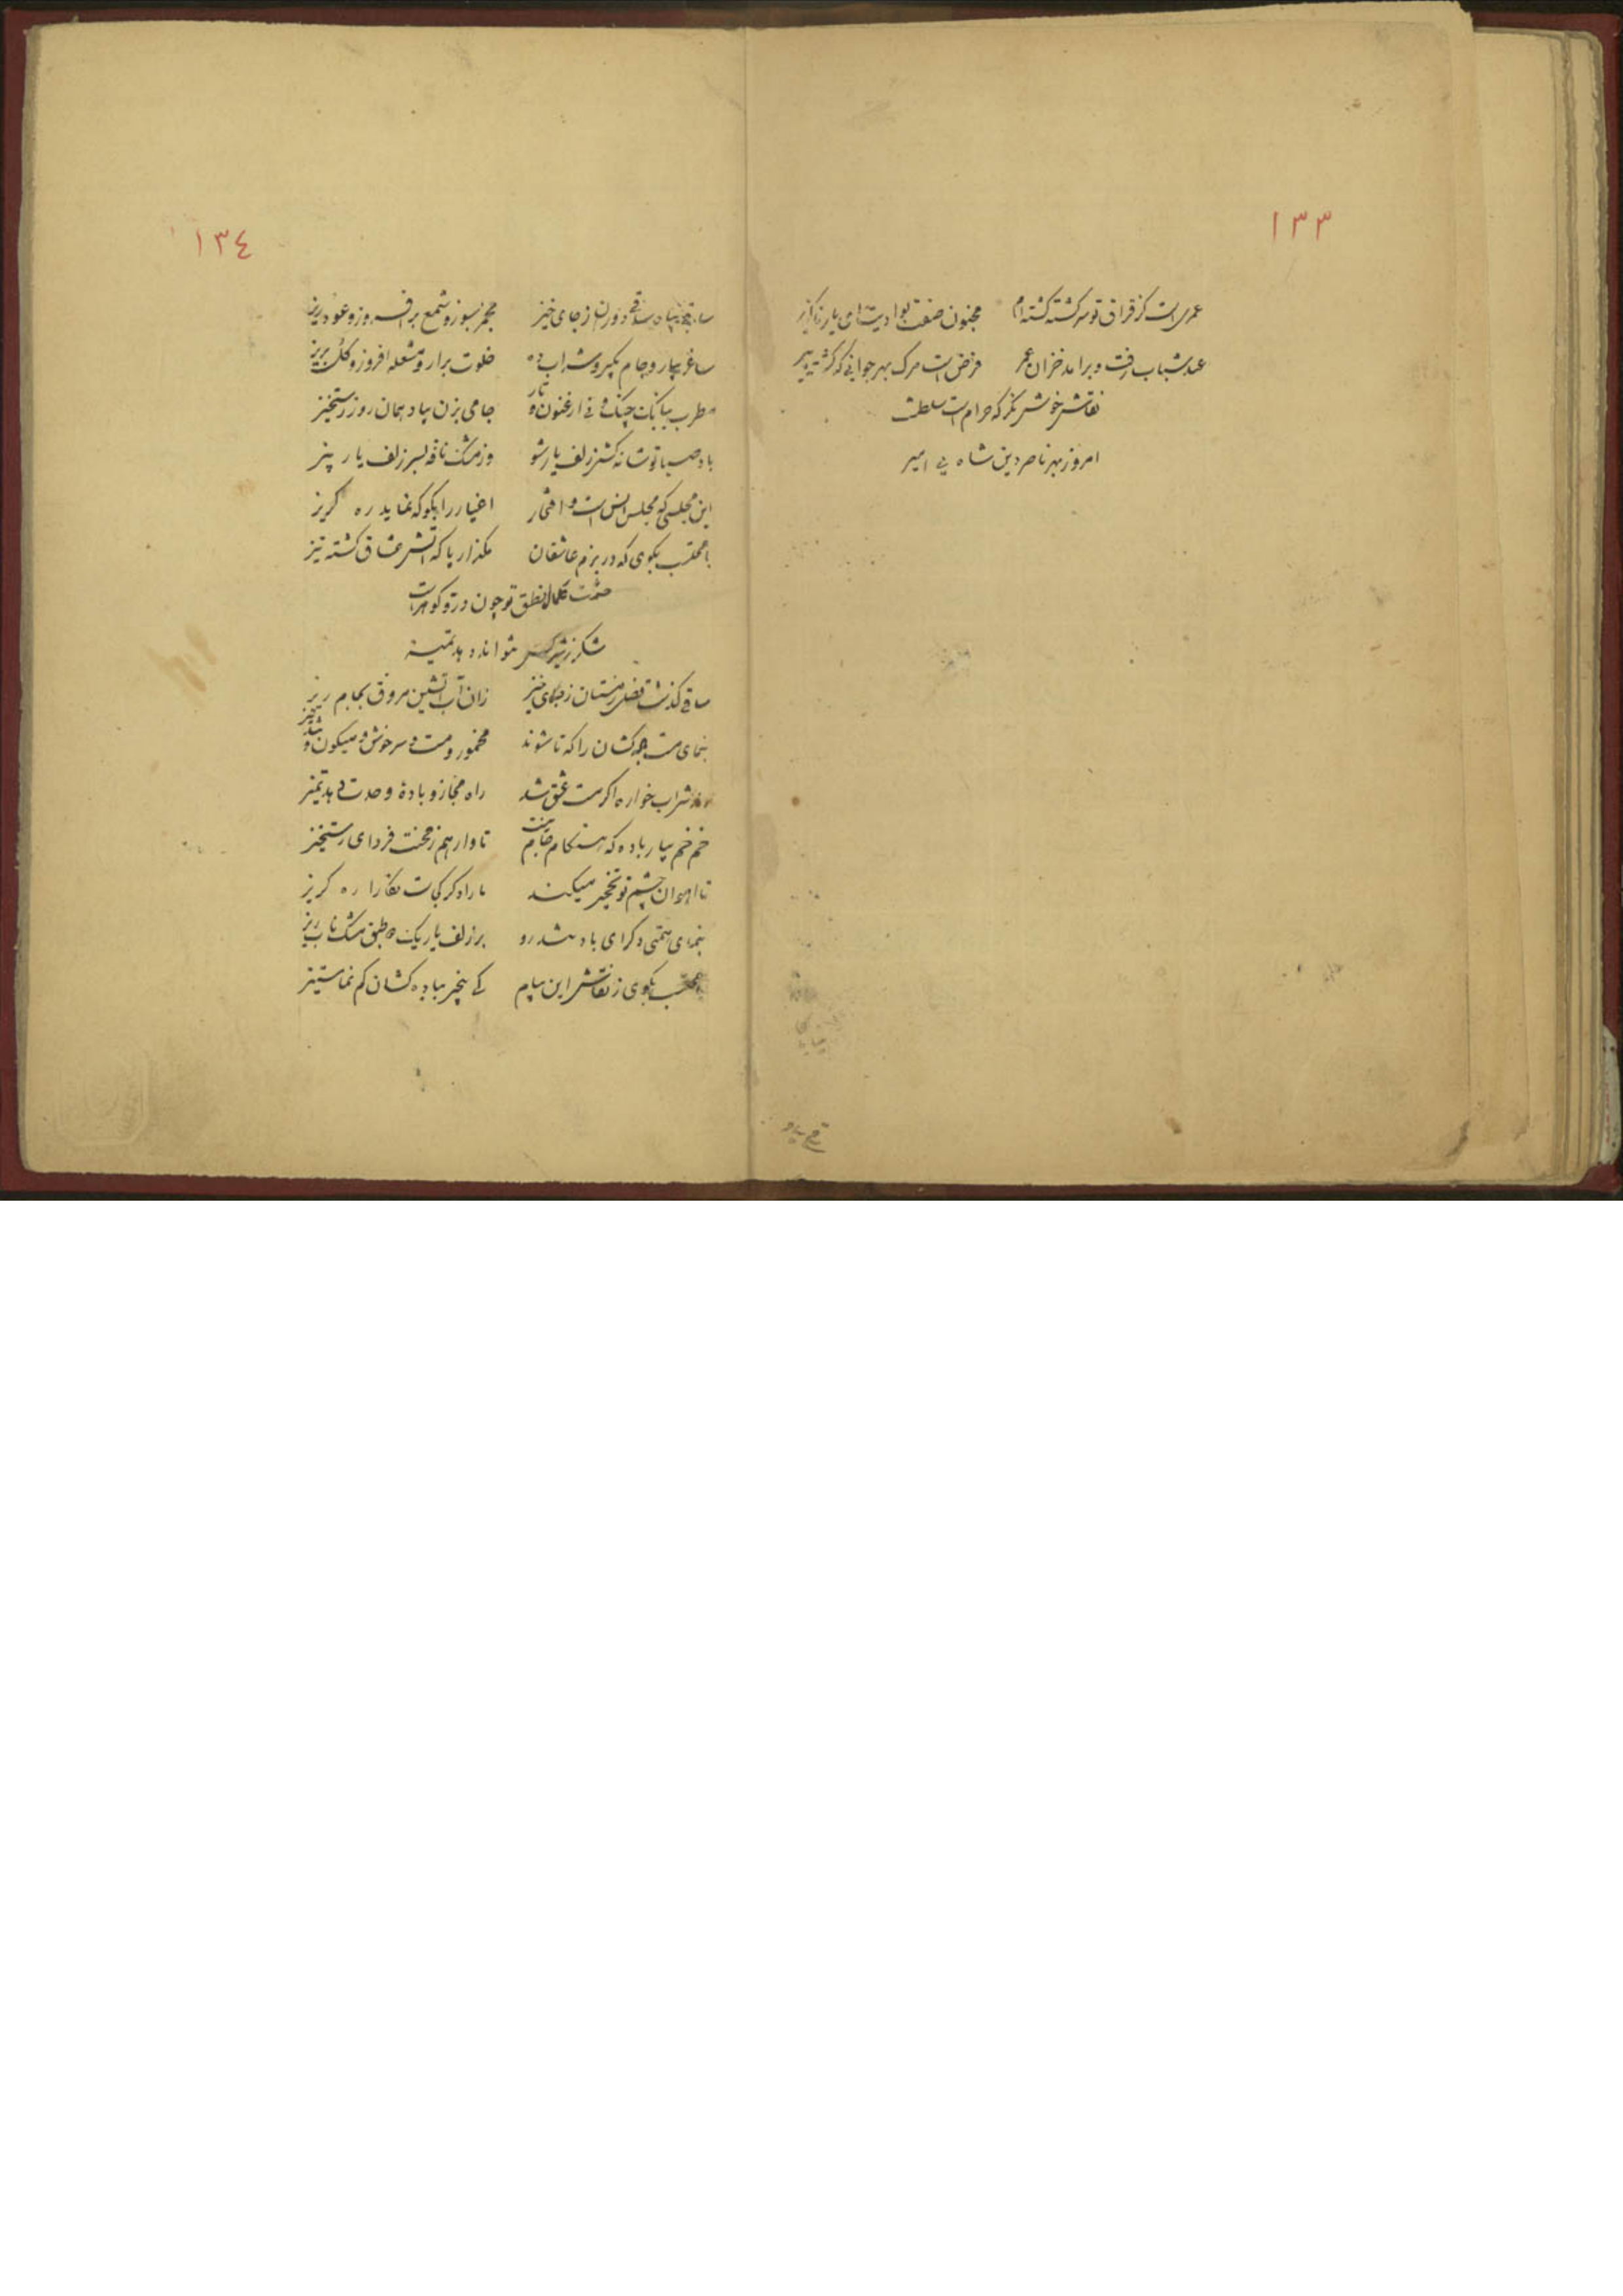 ۱۳۳
عمریست کز فراق تو سرگشته گشته‌ام مجنون صفت بوادیت ای یار ناگزیر
عهد شباب رفت و برامد خزان عمر فرض است مرک بهر جوانی که گشت پیر
نقاش خوش نکر که حرام است سلطنت
امروز بهر ناصردین شاه بی امیر
قدح بیاو
۱۳٤
دوران ز جای خیز مجمر بسوز و شمع برافروز و عود ریز
ساغر بیار و جام بگیر و شراب ده خلوت برار و مشعله افروز و گل بریز
مطرب ببانک چنک و نی ارغنون و تار جامی بزن بیاد همان روز رستخیز
باد صبا تو شانه کش زلف یار شو وز مشک نافه بسر زلف یار بیز
این مجلسی که مجلس انس است و افتخار اغیار را بگو که نماید ره گریز
با محتسب بکوی که در بزم عاشقان مگذار پا که اتش عشاق گشته تیز
حشمت کمال نطق تو چون در و گوهر است
شکر ز شیر کس نتواند دهد تمیز
ساقی گذشت فصل زمستان ز جای خیز زان آب اتشین مروق بجام ریز
بنمای مست کشان را که تا شوند مخمور و مست و سرخوش و میکون و شنگ
شراب خواره اکر مست عشق شد راه مجاز و بادهٔ وحدت دهد تمیز
خم خم بیار باده که هنکام تا وارهم ز محنت فردای رستخیز
تا اهوان چشم تو نخجیر میکنند ما را دگر کجاست نگارا ره گریز
بنمای همتی دگر ای باد رو بر زلف یار یک دو طبق مشک ناب ریز
محتسب بکوی ز نقاش این پیام کی بیخبر بباده کشان کم نما ستیز